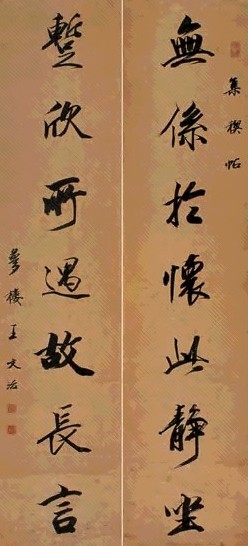 集禊帖
無係於懷此靜坐
蹔欣所遇故長言
夢樓王文治